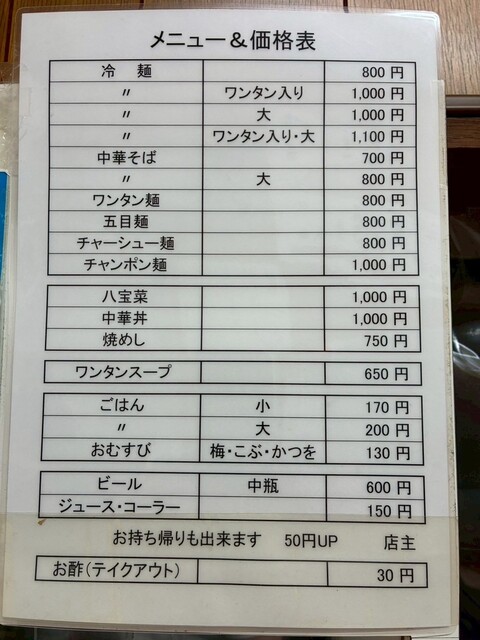 メニュー＆価格表
冷　麺 800 円
〃 ワンタン入り 1,000 円
〃 大 1,000 円
〃 ワンタン入り・大 1,100 円
中華そば 700 円
〃 大 800 円
ワンタン麺 800 円
五目麺 800 円
チャーシュー麺 800 円
チャンポン麺 1,000 円
八宝菜 1,000 円
中華丼 1,000 円
焼めし 750 円
ワンタンスープ 650 円
ごはん 小 170 円
〃 大 200 円
おむすび 梅・こぶ・かつを 130 円
ビール 中瓶 600 円
ジュース・コーラー 150 円
お持ち帰りも出来ます　50円UP　店主
お酢（テイクアウト） 30 円